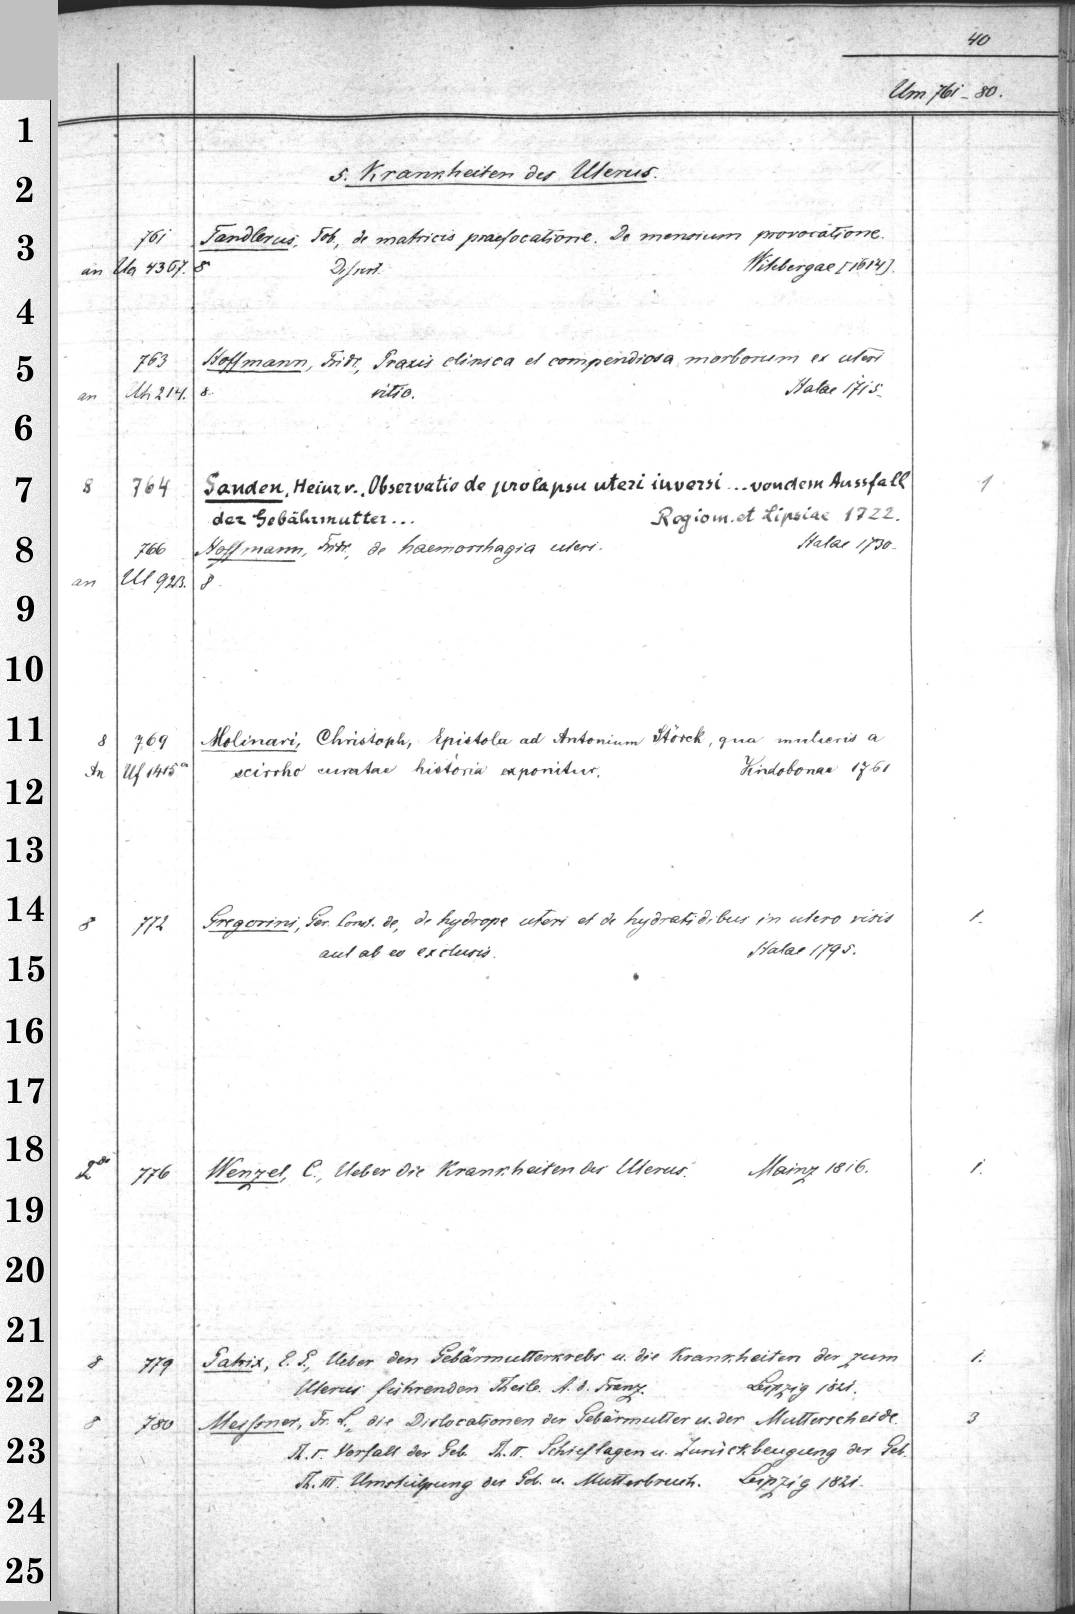 40
Um 761-80.
1
2
5. Krankheiten des Uterus.
3
761 Tandlerus, Tob., de matricis praefocatione. De mensium provocatione.
an Ua 4367. 8 Dissert. Witebergae [1614].
4
5
763 Hoffmann, Fridr., Praxis clinica et compendiosa morborum ex uteri
an Uh 214. 8. vitio. Halae 1715.
6
7
8 764 Sanden, Heinr. v., Observatio de prolapsu uteri inversi ... von dem Aussfall 1
der Gebährmutter ... Regiom. et Lipsiae 1722.
8
766 Hoffmann, Fridr., de haemorrhagia uteri. Halae 1730.
an Ul 923. 8.
9
10
11
8 769 Molinari, Christoph, Epistola ad Antonium Störck, qua mulieris a
An Uf 1415a scirrho curatae historia exponitur. Vindobonae 1761
12
13
14
8 772 Gregorini, Ger. Const. de, de hydrope uteri et de hydratidibus in utero visis 1.
aut ab eo exclusis. Halae 1795.
15
16
17
18
2° 776 Wenzel, C., Ueber die Krankheiten des Uterus. Mainz 1816. 1.
19
20
21
8 779 Patrix, E. G., Ueber den Gebärmutterkrebs u. die Krankheiten der zum 1.
22
Uterus führenden Theile. A. d. Franz. Leipzig 1821.
8 780 Meissner, Fr. L., die Dislocationen der Gebärmutter u. der Mutterscheide. 3
23
Th. I. Vorfall der Geb. Th. II. Schieflagen u. Zurückbeugung der Geb.
Th. III. Umstülpung der Geb. u. Mutterbruch. Leipzig 1821.
24
25